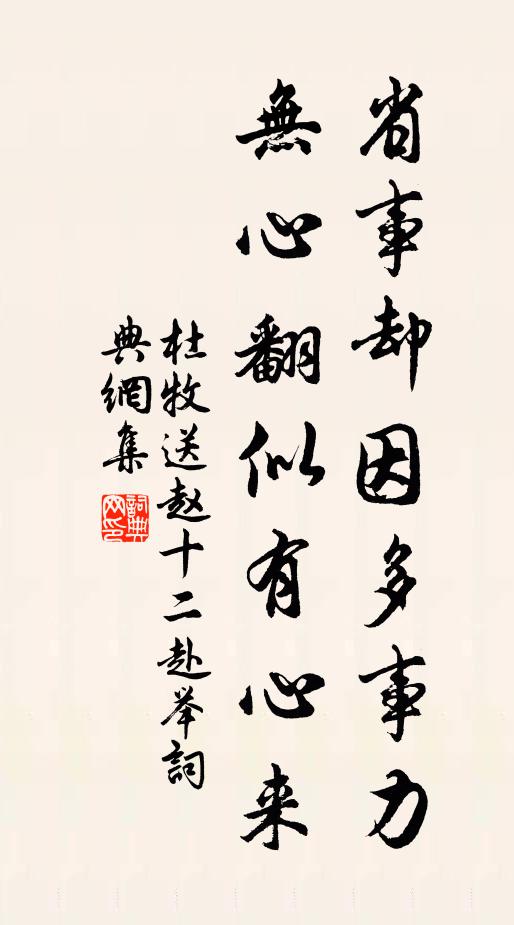 省事却因多事力
無心翻似有心来
杜牧送赵十二赴举詞
典網集
詞典网印